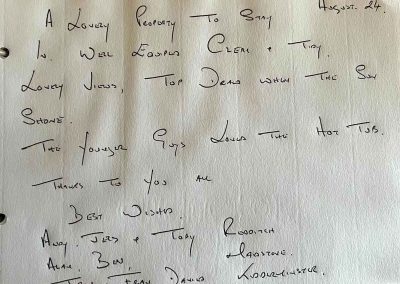 August. 24.
A Lovely Property To Stay
In. Well Equiped Clean + Tidy.
Lovely Views, Top Draw When The Sun
Shone.
The Younger Guys Loved The Hot Tub.
Thanks To You All
Best Wishes.
Andy. + Toby Redditch
Alan. Ben. Maidstone.
Kidderminster.